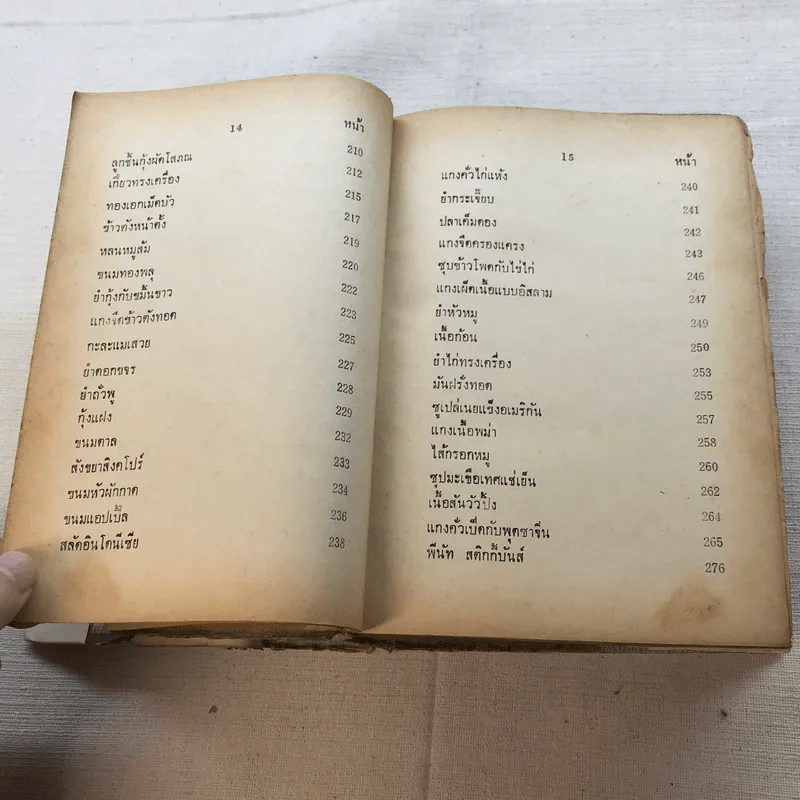 14 หน้า
ลูกชิ้นกุ้งผัดโสภณ 210
เกี๊ยวทรงเครื่อง 212
ทองเอกเม็ดบัว 215
ข้าวตังหน้าตั้ง 217
หลนหมูส้ม 219
ขนมทองพลุ 220
ยำกุ้งกับขมิ้นขาว 222
แกงจืดข้าวตังทอด 223
กะละแมเสวย 225
ยำดอกขจร 227
ยำถั่วพู 228
กุ้งแฝง 229
ขนมตาล 232
สังขยาสิงคโปร์ 233
ขนมหัวผักกาด 234
ขนมแอปเปิ้ล 236
สลัดอินโดนีเซีย 238
15 หน้า
แกงคั่วไก่แห้ง 240
ยำกระเจี๊ยบ 241
ปลาเค็มดอง 242
แกงจืดกรองแครง 243
ซุบข้าวโพดกับไข่ไก่ 246
แกงเผ็ดเนื้อแบบอิสลาม 247
ยำหัวหมู 249
เนื้อก้อน 250
ยำไก่ทรงเครื่อง 253
มันฝรั่งทอด 255
ซูเปล่เนยแข็งอเมริกัน 257
แกงเนื้อพม่า 258
ไส้กรอกหมู 260
ซุปมะเขือเทศแช่เย็น 262
เนื้อสันวัวปิ้ง 264
แกงคั่วเป็ดกับพุดซาจีน 265
พีนัท สติกกี้บันส์ 276